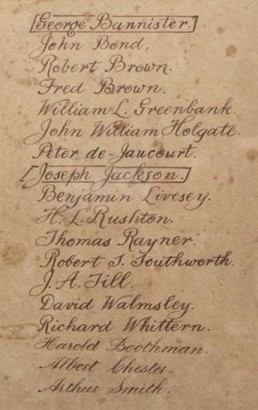 [George Bannister.]
John Bond.
Robert Brown.
Fred Brown.
William L. Greenbank.
John William Holgate.
Peter de-Jaucourt.
[Joseph Jackson.]
Benjamin Livesey.
H. L. Rushton.
Thomas Rayner.
Robert S. Southworth.
J. A. Till.
David Walmsley.
Richard Whittern.
Harold Boothman.
Albert Chester.
Arthur Smith.